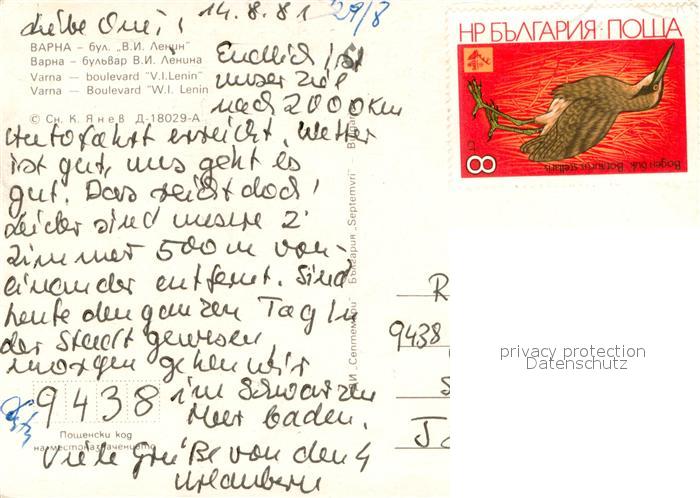 14.8.81 29/8
Liebe Omi!
ВАРНА – бул. „В.И. Ленин"
Варна – бульвар В.И. Ленина
Varna – boulevard "V.I.Lenin"
Varna – Boulevard "W.I. Lenin
© Сн. К. Янев Д-18029-А
Endlich ist
unser Ziel
nach 2000 km
Autofahrt erreicht. Wetter
ist gut, uns geht es
gut. Das reicht doch!
Leider sind unsere 2
Zimmer 500 m von-
einander entfernt. Sind
heute den ganzen Tag in
der Stadt gewesen,
morgen gehen wir
im Schwarzen
Meer baden.
9438
Пощенски код
на местоназначението
Viele Grüße von den 4
Urlaubern
ДИ „Септември" България "Septemvri"
НР БЪЛГАРИЯ ПОЩА
8
Botaurus stellaris
R
9438
S
J
privacy protection
Datenschutz